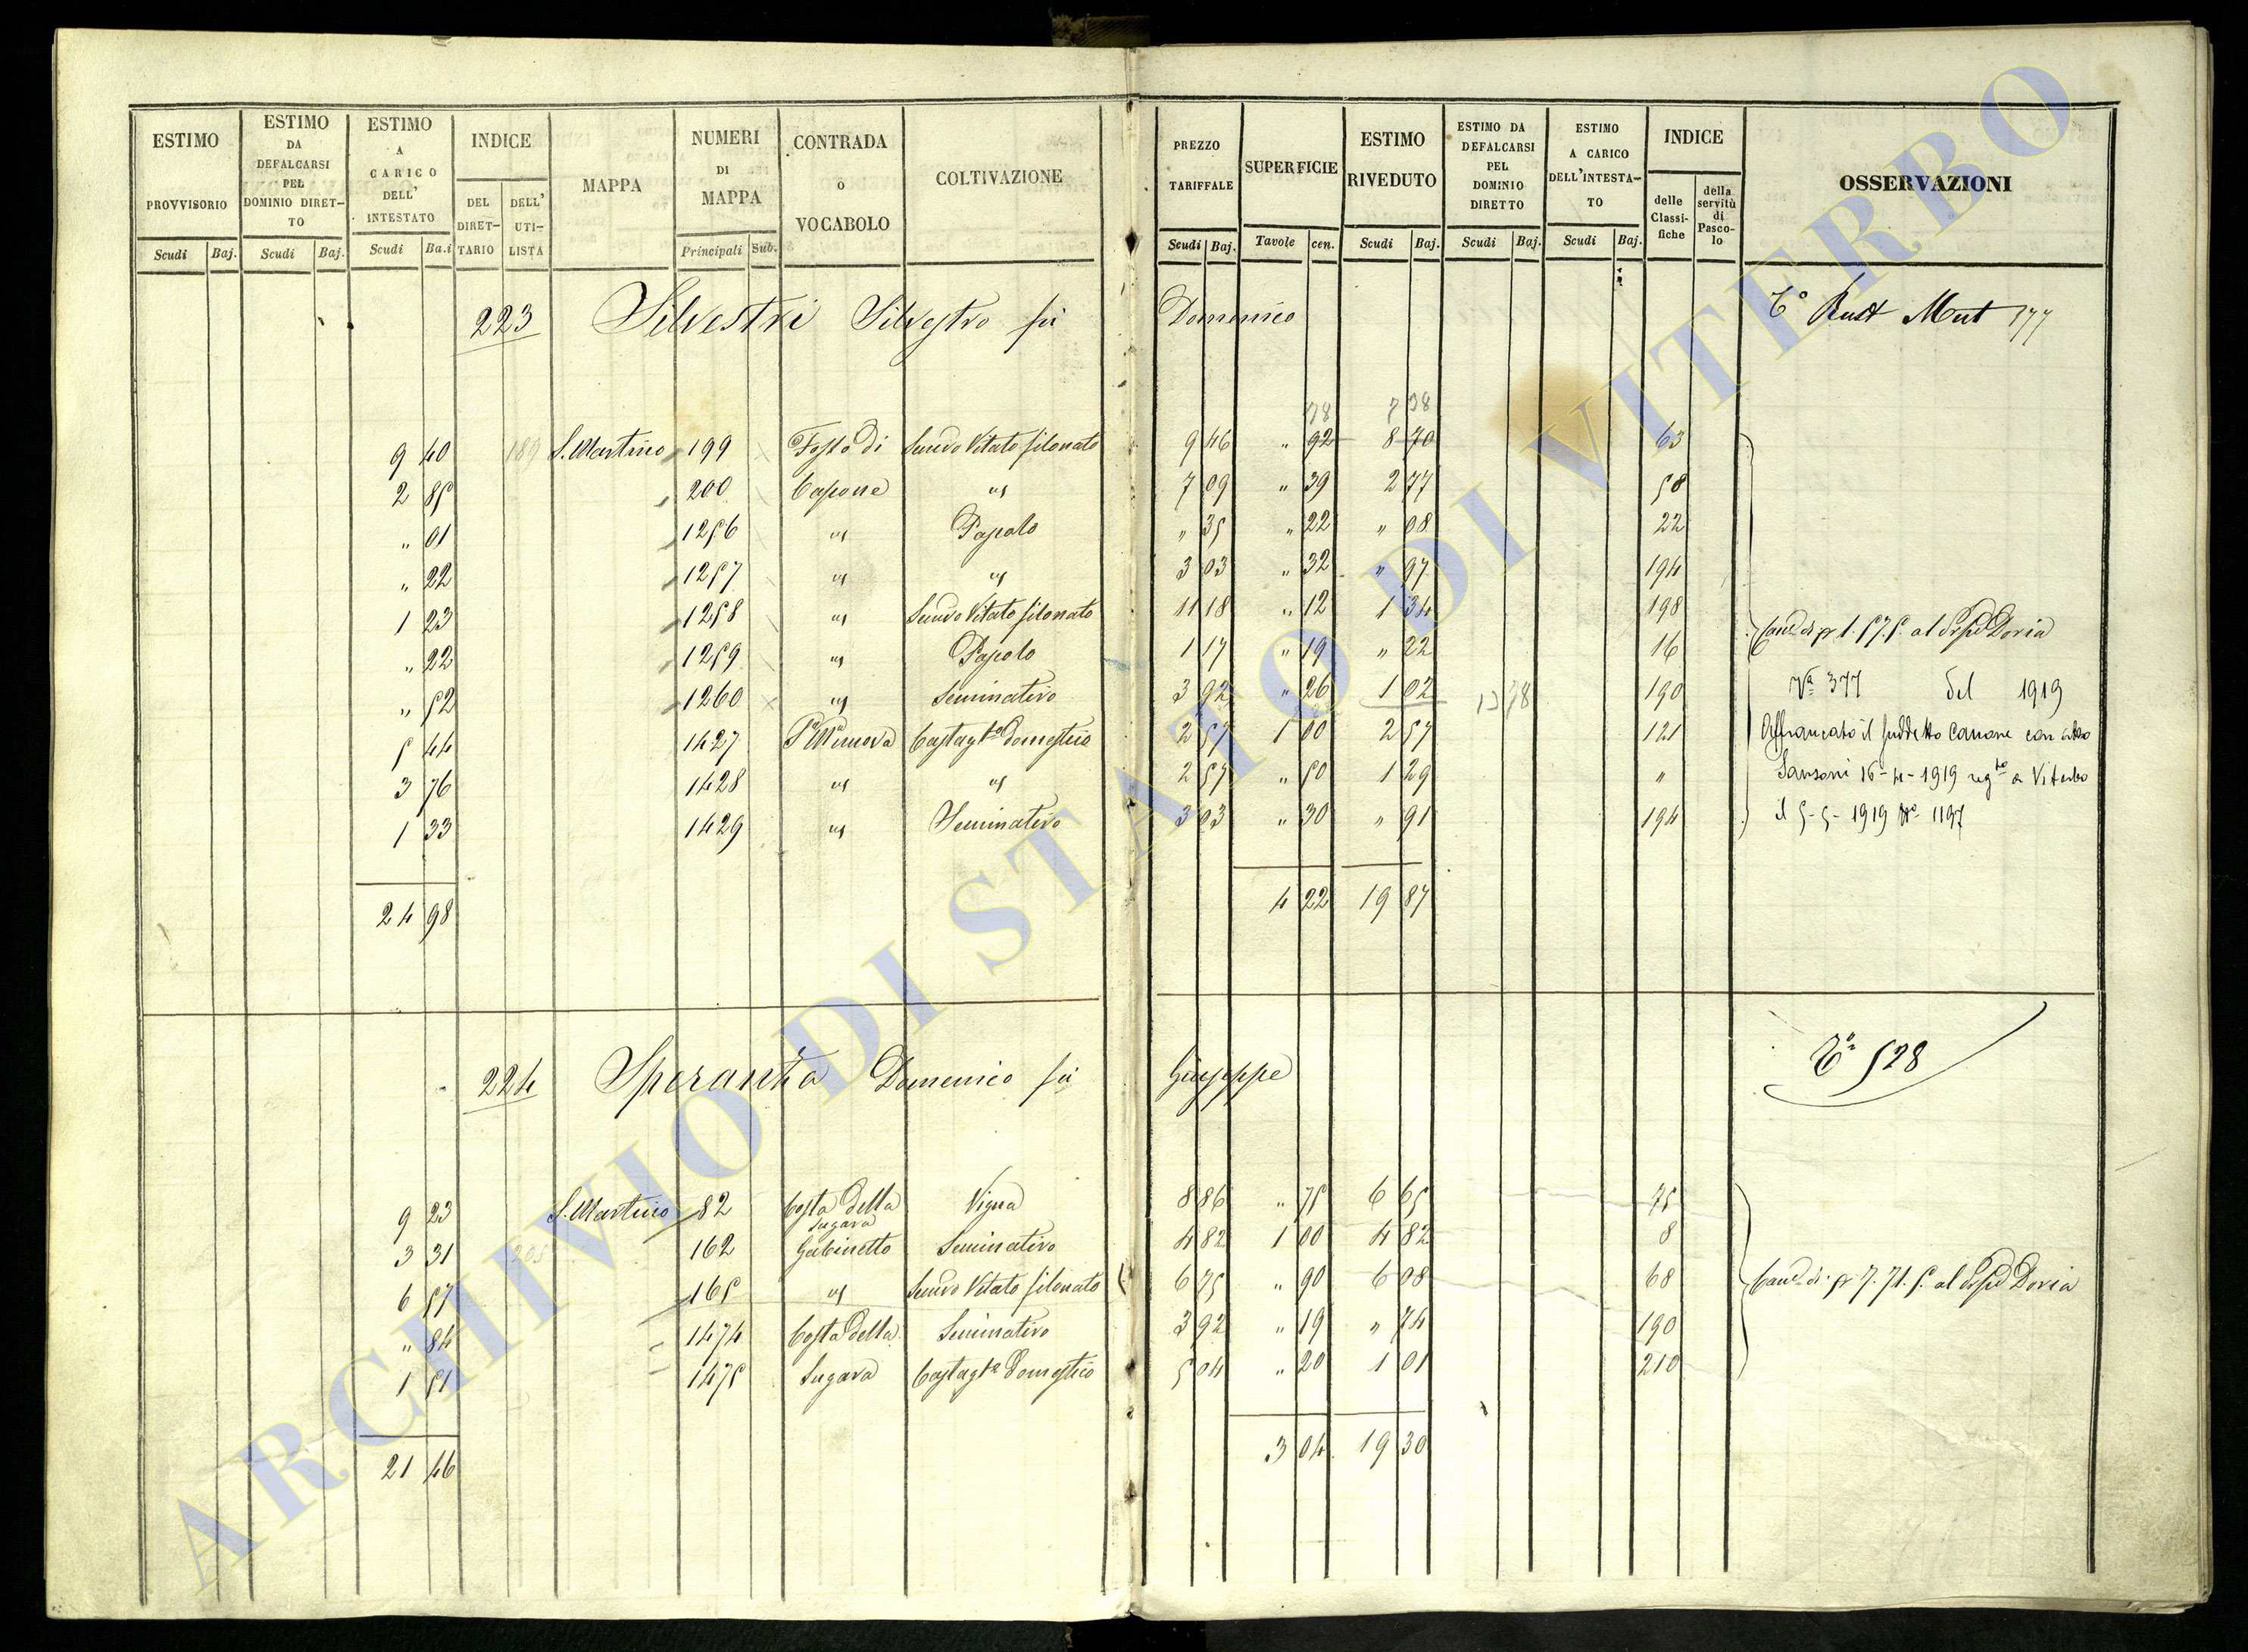 ESTIMO PROVVISORIO Scudi Baj.
ESTIMO DA DEFALCARSI PEL DOMINIO DIRET-TO Scudi Baj.
ESTIMO A CARICO DELL' INTESTATO Scudi Ba.i
INDICE DEL DIRET-TARIO DELL' UTI-LISTA
MAPPA
NUMERI DI MAPPA Principali Sub.
CONTRADA O VOCABOLO
COLTIVAZIONE
PREZZO TARIFFALE Scudi Baj.
SUPERFICIE Tavole cen.
ESTIMO RIVEDUTO Scudi Baj.
ESTIMO DA DEFALCARSI PEL DOMINIO DIRETTO Scudi Baj.
ESTIMO A CARICO DELL'INTESTA-TO Scudi Baj.
INDICE delle Classi-fiche della servitù di Pasco-lo
OSSERVAZIONI
223 Silvestri Silvestro fu Domenico Rust Mut 177
78 7 38
9 40 189 S. Martino 199 Fosso di Semvo Vitato filonato 9 46 " 92 8 70 63
2 85 200 Capone " 7 09 " 39 2 77 58
" 01 1256 " Pascolo " 35 " 22 " 08 22
" 22 1257 " " 3 03 " 32 " 97 194
1 23 1258 " Semvo Vitato filonato 11 18 " 12 1 34 198
Cane di 1.57.5. al Doria
" 22 1259 " Pascolo 1 17 " 19 " 22 16
" 52 1260 " Seminativo 3 92 " 26 1 02 190
Va 377 del 1919
5 44 1427 Castagto domestico 2 57 1 00 2 57 121
Affrancato il suddetto canone con atto
3 76 1428 " " 2 57 " 50 1 29 "
Sansoni 16-4-1919 regto a Viterbo
1 33 1429 " Seminativo 3 03 " 30 " 91 194
il 5-5-1919 No 1197
24 98 4 22 19 87
224 Speranza Domenico fu Giuseppe 528
9 23 S. Martino 82 Costa della Sugara Vigna 8 86 " 75 6 65 75
3 31 205 162 Gabinetto Seminativo 4 82 1 00 4 82 8
6 57 165 " Semvo Vitato filonato 6 75 " 90 6 08 68
Cane di 7.71.5. al Doria
" 84 1474 Costa della Seminativo 3 92 " 19 " 74 190
1 51 1475 Sugara Castagto domestico 5 04 " 20 1 01 210
21 46 3 04 19 30
ARCHIVIO DI STATO DI VITERBO